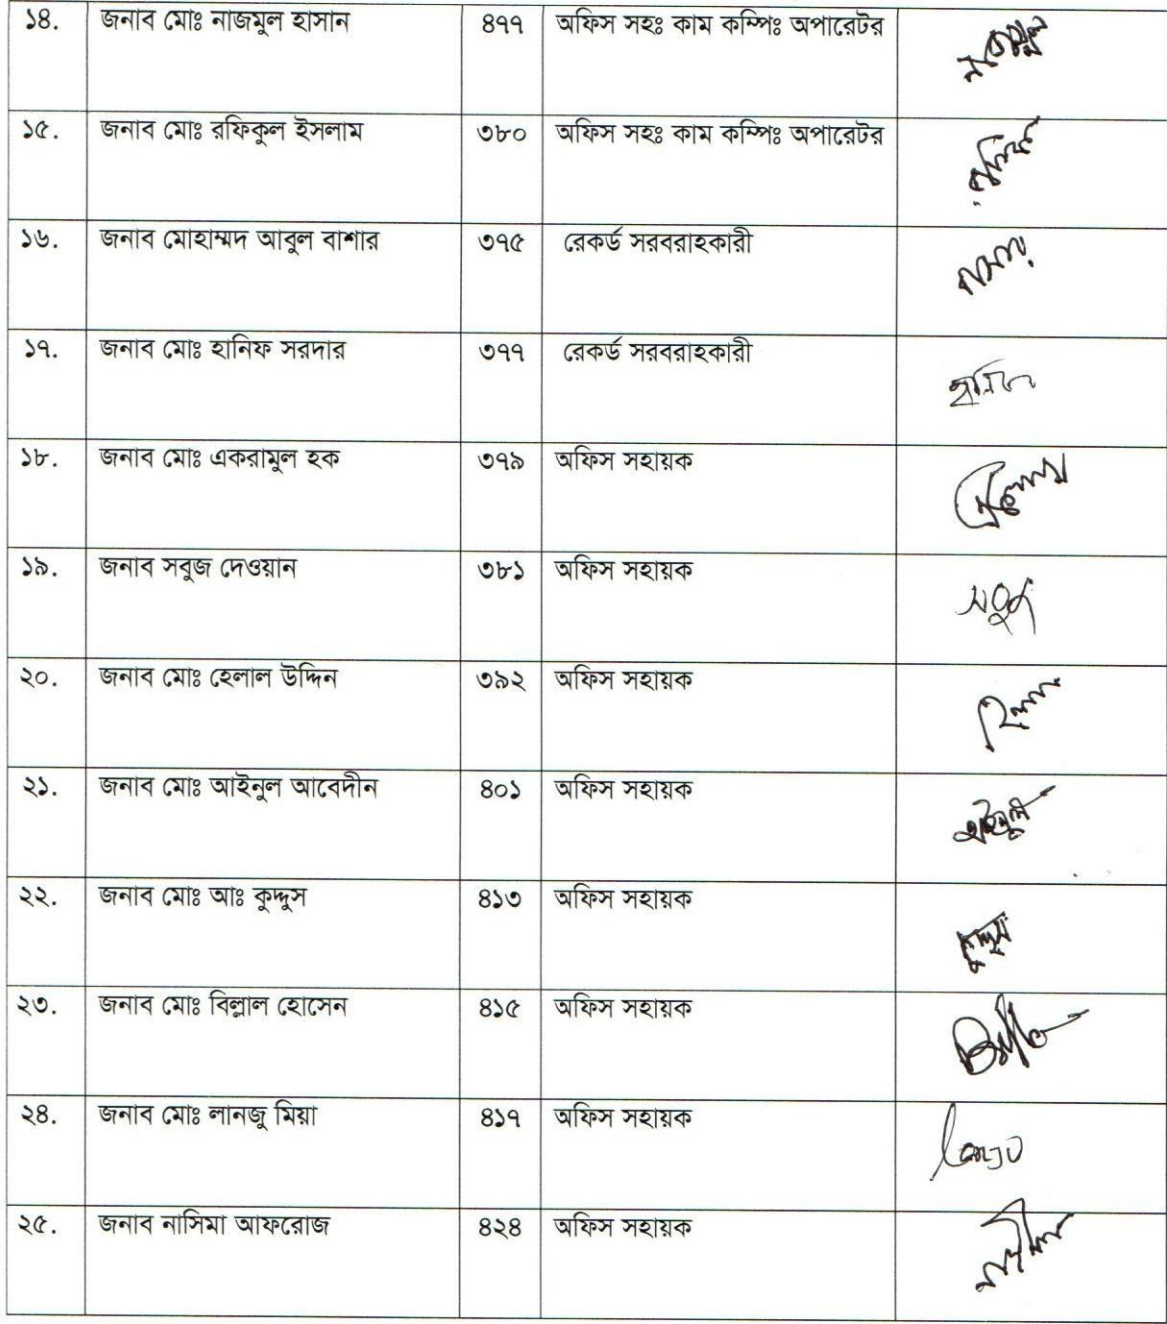 ১৪. জনাব মোঃ নাজমুল হাসান ৪৭৭ অফিস সহঃ কাম কম্পিঃ অপারেটর নাজমুল
১৫. জনাব মোঃ রফিকুল ইসলাম ৩৮০ অফিস সহঃ কাম কম্পিঃ অপারেটর
১৬. জনাব মোহাম্মদ আবুল বাশার ৩৭৫ রেকর্ড সরবরাহকারী
১৭. জনাব মোঃ হানিফ সরদার ৩৭৭ রেকর্ড সরবরাহকারী
১৮. জনাব মোঃ একরামুল হক ৩৭৯ অফিস সহায়ক
১৯. জনাব সবুজ দেওয়ান ৩৮১ অফিস সহায়ক সবুজ
২০. জনাব মোঃ হেলাল উদ্দিন ৩৯২ অফিস সহায়ক
২১. জনাব মোঃ আইনুল আবেদীন ৪০১ অফিস সহায়ক আইনুল
২২. জনাব মোঃ আঃ কুদ্দুস ৪১৩ অফিস সহায়ক কুদ্দুস
২৩. জনাব মোঃ বিল্লাল হোসেন ৪১৫ অফিস সহায়ক
২৪. জনাব মোঃ লানজু মিয়া ৪১৭ অফিস সহায়ক Lanju
২৫. জনাব নাসিমা আফরোজ ৪২৪ অফিস সহায়ক